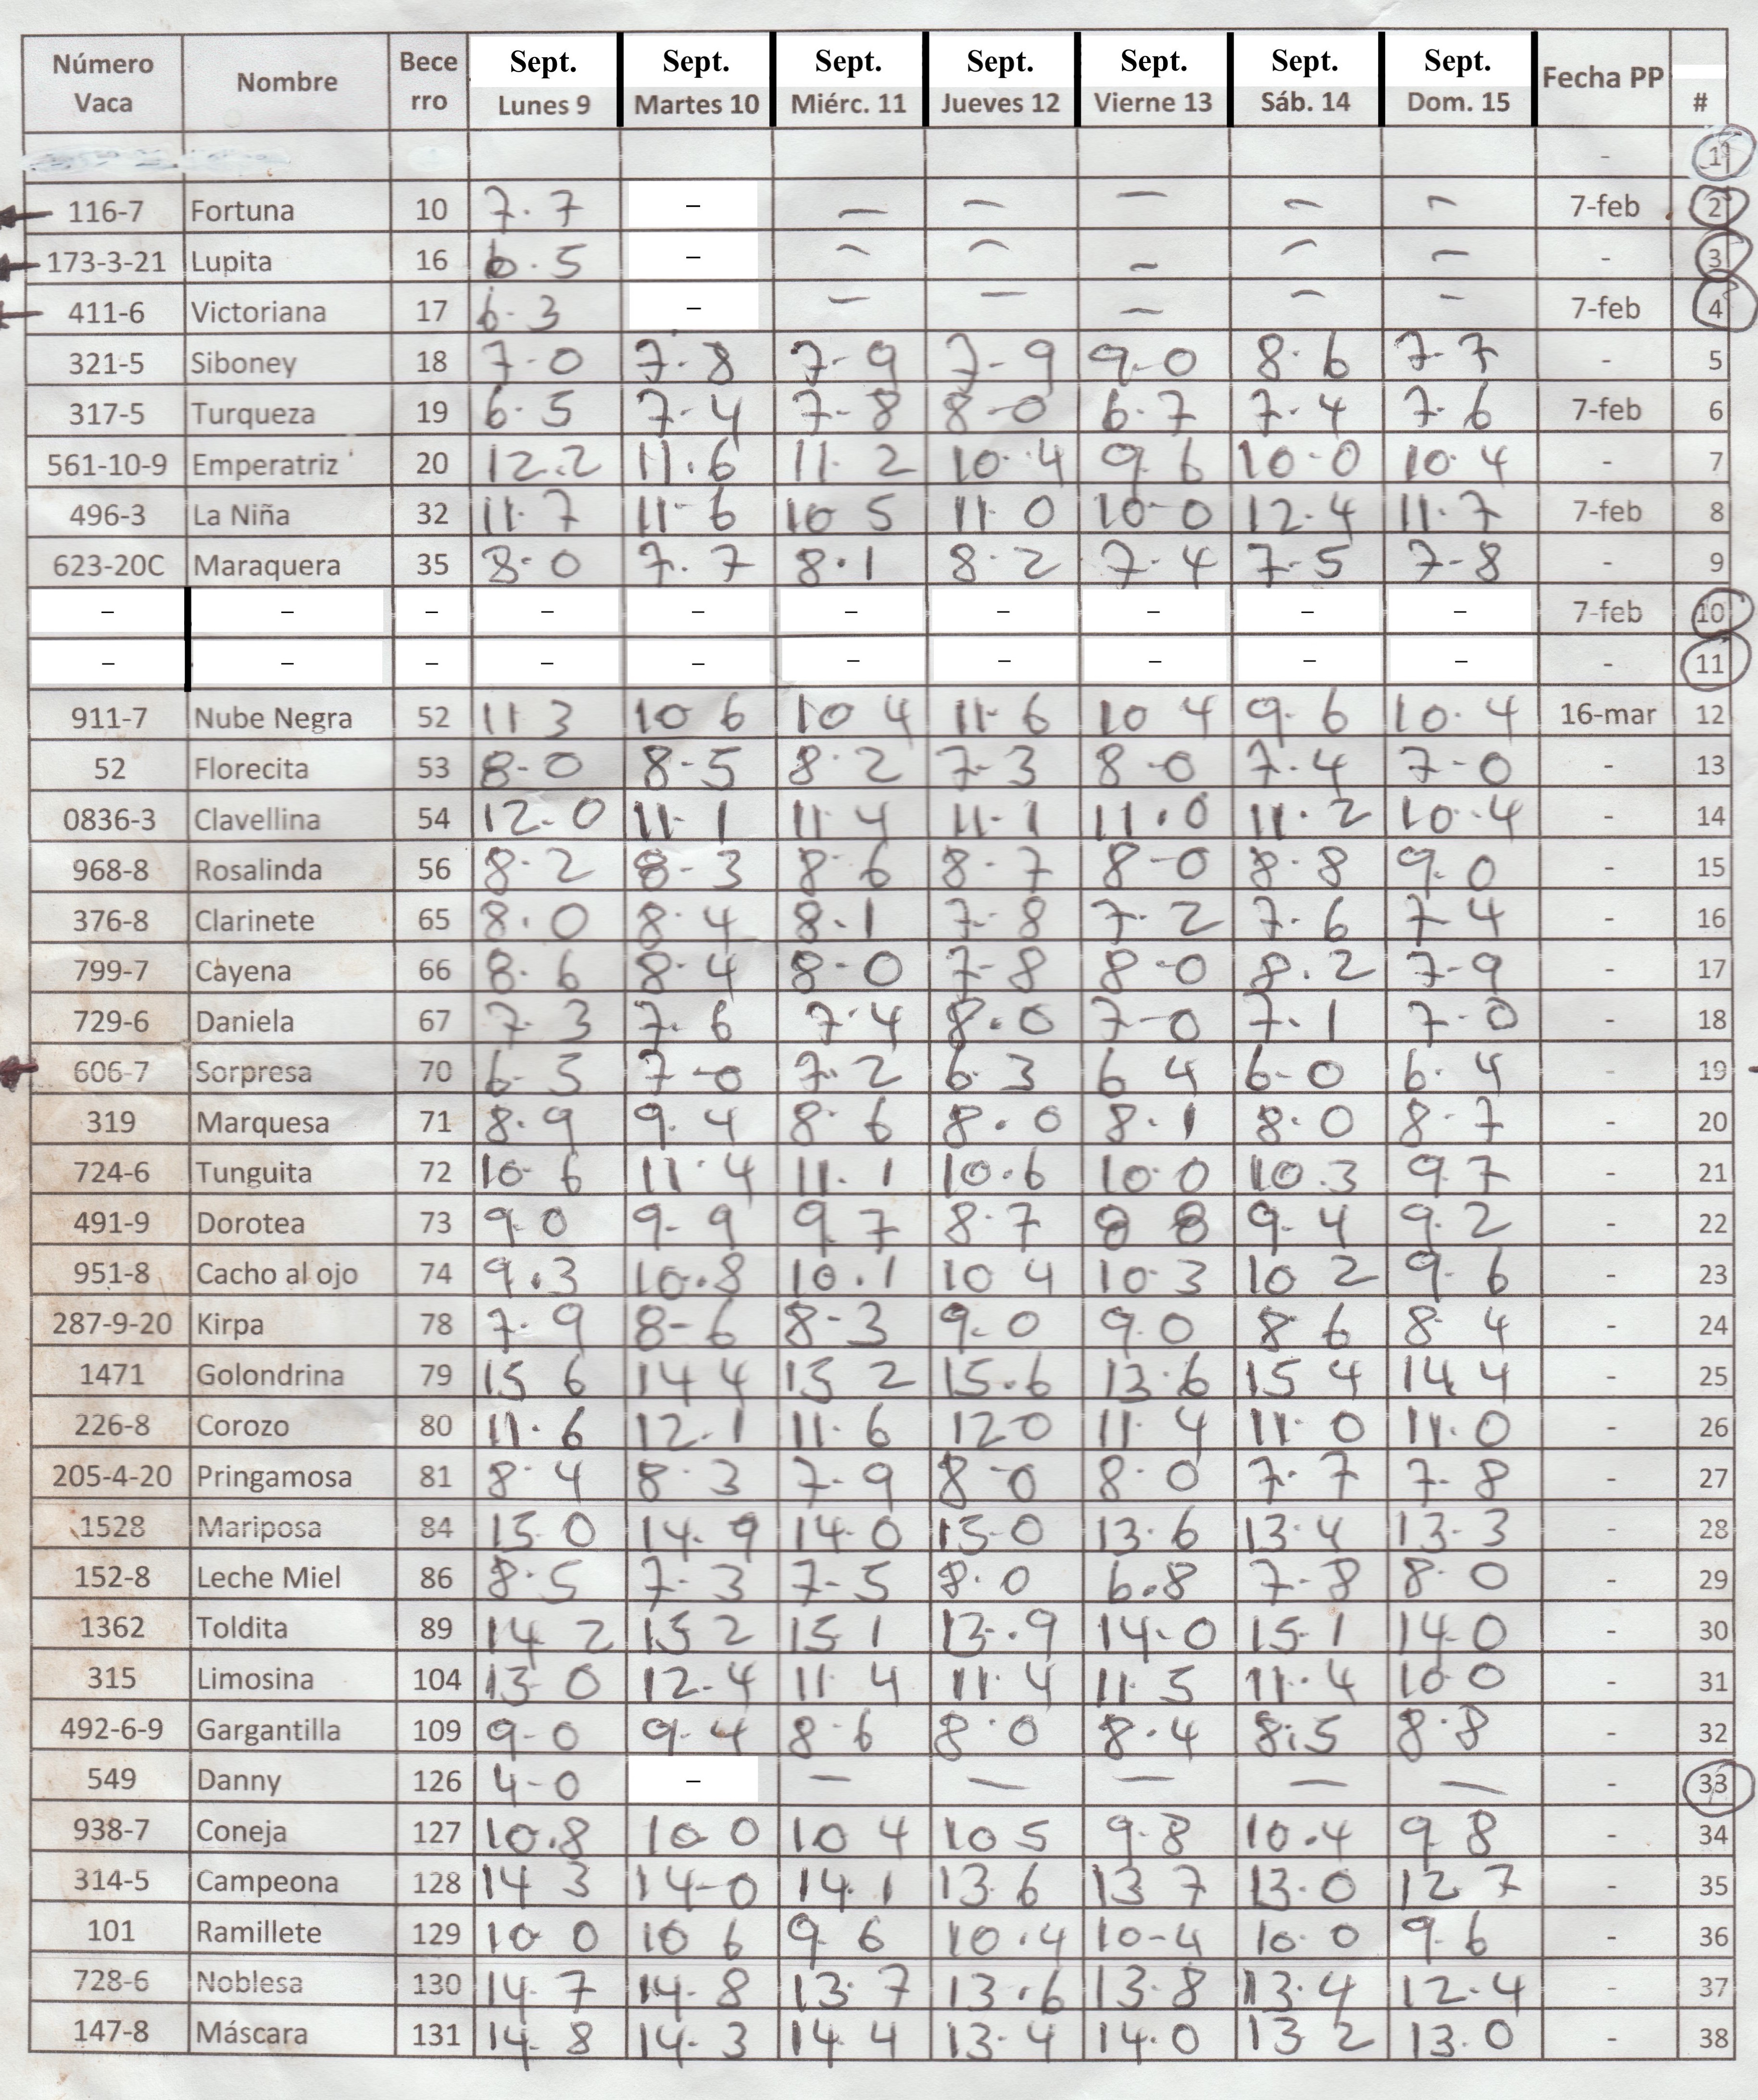 Número Vaca Nombre Bece rro Sept. Lunes 9 Sept. Martes 10 Sept. Miérc. 11 Sept. Jueves 12 Sept. Vierne 13 Sept. Sáb. 14 Sept. Dom. 15 Fecha PP #
- 1
116-7 Fortuna 10 7.7 – – – – – – 7-feb 2
173-3-21 Lupita 16 6.5 – – – – – – - 3
411-6 Victoriana 17 6-3 – – – – – – 7-feb 4
321-5 Siboney 18 7-0 7-8 7-9 7-9 9-0 8.6 7-7 - 5
317-5 Turqueza 19 6.5 7-4 7-8 8-0 6.7 7.4 7.6 7-feb 6
561-10-9 Emperatriz 20 12.2 11.6 11.2 10.4 9 6 10-0 10.4 - 7
496-3 La Niña 32 11.7 11-6 10 5 11.0 10-0 12.4 11.7 7-feb 8
623-20C Maraquera 35 8.0 7.7 8.1 8.2 7.4 7-5 7-8 - 9
– – – – – – – – – – 7-feb 10
– – – – – – – – – – - 11
911-7 Nube Negra 52 11 3 10 6 10 4 11-6 10 4 9-6 10.4 16-mar 12
52 Florecita 53 8-0 8-5 8.2 7-3 8-0 7.4 7-0 - 13
0836-3 Clavellina 54 12.0 11-1 11 4 11-1 11.0 11.2 10.4 - 14
968-8 Rosalinda 56 8.2 8-3 8-6 8-7 8-0 8.8 9.0 - 15
376-8 Clarinete 65 8.0 8.4 8.1 7-8 7.2 7.6 7-4 - 16
799-7 Cayena 66 8.6 8.4 8-0 7-8 8-0 8.2 7-9 - 17
729-6 Daniela 67 7.3 7.6 7.4 8.0 7-0 7.1 7-0 - 18
606-7 Sorpresa 70 6-5 7-0 7.2 6.3 6 4 6-0 6.4 - 19
319 Marquesa 71 8.9 9.4 8.6 8.0 8.1 8.0 8-7 - 20
724-6 Tunguita 72 10-6 11.4 11.1 10.6 10.0 10.3 9 7 - 21
491-9 Dorotea 73 9.0 9-9 9.7 8.7 8 8 9-4 9.2 - 22
951-8 Cacho al ojo 74 9.3 10.8 10.1 10 4 10-3 10 2 9-6 - 23
287-9-20 Kirpa 78 7-9 8-6 8-3 9.0 9.0 8 6 8 4 - 24
1471 Golondrina 79 15 6 14 4 15 2 15.6 13.6 15 4 14 4 - 25
226-8 Corozo 80 11.6 12.1 11.6 12 0 11.4 11.0 11.0 - 26
205-4-20 Pringamosa 81 8.4 8.3 7-9 8-0 8.0 7.7 7-8 - 27
1528 Mariposa 84 15 0 14.9 14.0 15-0 13.6 13.4 13-3 - 28
152-8 Leche Miel 86 8.5 7-3 7-5 8.0 6.8 7-8 8.0 - 29
1362 Toldita 89 14 2 15 2 15 1 13.9 14.0 15-1 14.0 - 30
315 Limosina 104 13-0 12.4 11.4 11.4 11.5 11.4 10-0 - 31
492-6-9 Gargantilla 109 9-0 9-4 8-6 8.0 8.4 8.5 8.8 - 32
549 Danny 126 4-0 – – – – – – - 33
938-7 Coneja 127 10.8 10 0 10 4 10 5 9.8 10.4 9 8 - 34
314-5 Campeona 128 14 3 14-0 14.1 13.6 13 7 13.0 12.7 - 35
101 Ramillete 129 10 0 10 6 9 6 10.4 10-4 10.0 9.6 - 36
728-6 Noblesa 130 14.7 14.8 13.7 13.6 13.8 13.4 12.4 - 37
147-8 Máscara 131 14.8 14.3 14.4 13.4 14.0 13 2 13.0 - 38